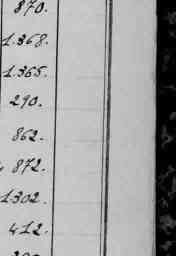 870.
1.368.
1.365.
290.
862.
872.
1302.
412.